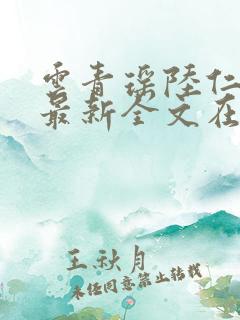 云青瑶陆仁
最新全文在
王秋月
未经同意禁止转载